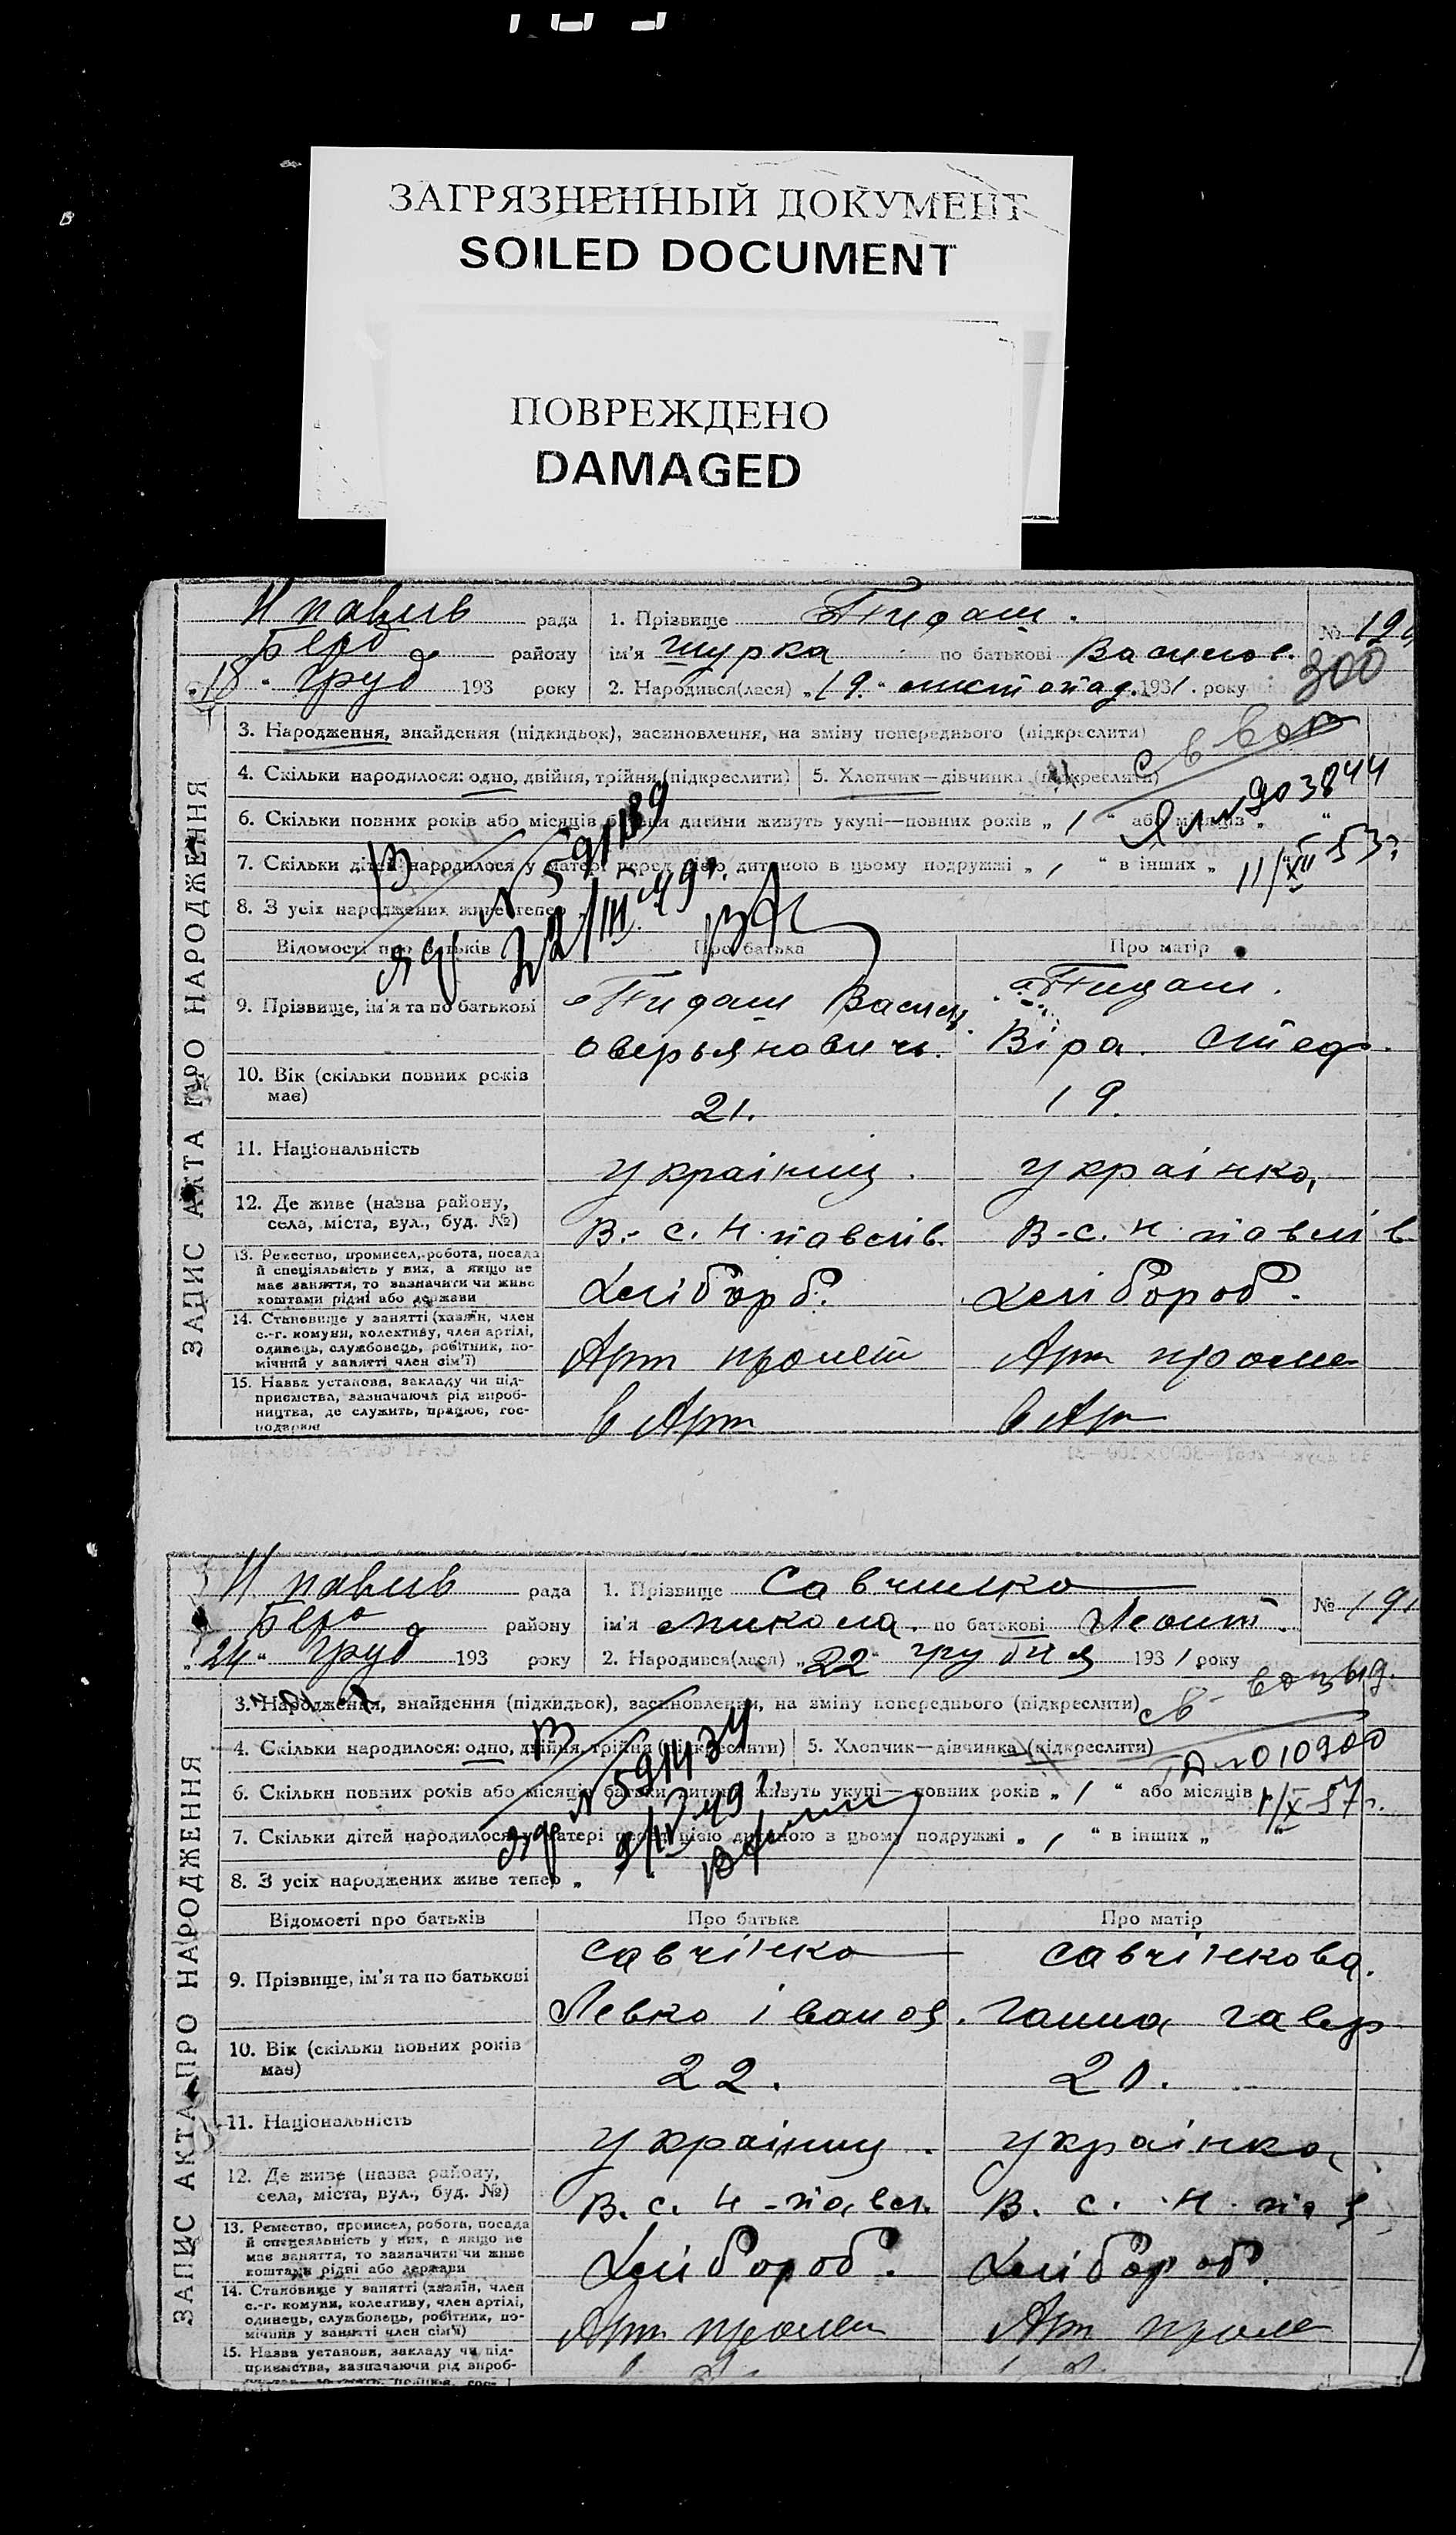 ЗАГРЯЗНЕННЫЙ ДОКУМЕНТ
SOILED DOCUMENT
ПОВРЕЖДЕНО
DAMAGED
ЗАПИС АКТА ПРО НАРОДЖЕННЯ
Н павлів рада
1. Прізвище
№ 190
Берд району
ім'я Шурка по батькові Васильов.
300
„18" груд 193 року
2. Народився(лася) „19" листопад. 1931. року
3. Народження, знайдення (підкидьок), засиновлення, на зміну попереднього (підкреслити)
4. Скільки народилося: одно, двійня, трійня (підкреслити) 5. Хлопчик—дівчинка (підкреслити)
ЯЛ №903844
6. Скільки повних років або місяців батьки дитини живуть укупі—повних років „ 1 " або місяців „ "
7. Скільки дітей народилося у матері перед цією дитиною в цьому подружжі „ 1 " в інших „
11/XII 53г.
№591189
8. З усіх народжених живе тепер
Відомості про батьків Про батька Про матір
9. Прізвище, ім'я та по батькові
Василь
Оверьянович. Віра. Стед.
10. Вік (скільки повних років має)
21. 19.
11. Національність
українец. українка,
12. Де живе (назва району, села, міста, вул., буд. №)
В.-с. Н. павлів. В-с. Н. павлів
13. Ремество, промисел, робота, посада й спеціяльність у них, а якщо не має заняття, то зазначити чи живе коштами рідні або держави
Хлібороб. Хлібороб.
14. Становище у занятті (хазяїн, член с.-г. комуни, колективу, член артілі, одинець, службовець, робітник, помічний у занятті член сім'ї)
Арт пролет Арт проле
15. Назва установи, закладу чи підприємства, зазначаючи рід виробництва, де служить, працює, господарює
в Арт в Арт
ЗАПИС АКТА ПРО НАРОДЖЕННЯ
Н павлів рада
1. Прізвище Савчинко
№ 191
Берд району
ім'я Микола. по батькові Леонт.
„24" груд 193 року
2. Народився(лася) „22" грудня 1931 року
3. Народження, знайдення (підкидьок), засиновлення, на зміну попереднього (підкреслити)
4. Скільки народилося: одно, двійня, трійня (підкреслити) 5. Хлопчик—дівчинка (підкреслити)
№010900
6. Скільки повних років або місяців батьки дитини живуть укупі—повних років „ 1 " або місяців
1/X-57г.
№591434
9/IV 49г.
7. Скільки дітей народилося у матері перед цією дитиною в цьому подружжі „ 1 " в інших „
8. З усіх народжених живе тепер „
Відомості про батьків Про батька Про матір
9. Прізвище, ім'я та по батькові
Савчінко Савчінкова.
Левко Іванов. Ганна Гавр
10. Вік (скільки повних років має)
22. 20.
11. Національність
українец. українка,
12. Де живе (назва району, села, міста, вул., буд. №)
В. с. Н-павл. В. с. Н. пав
13. Ремество, промисел, робота, посада й спецеяльність у них, а якщо не має заняття, то зазначити чи живе коштами рідні або держави
Хлібороб. Хлібороб.
14. Становище у занятті (хазяїн, член с.-г. комуни, колективу, член артілі, одинець, службовець, робітник, помічний у занятті член сім'ї)
Арт пролет Арт проле
15. Назва установи, закладу чи підприємства, зазначаючи рід вироб-